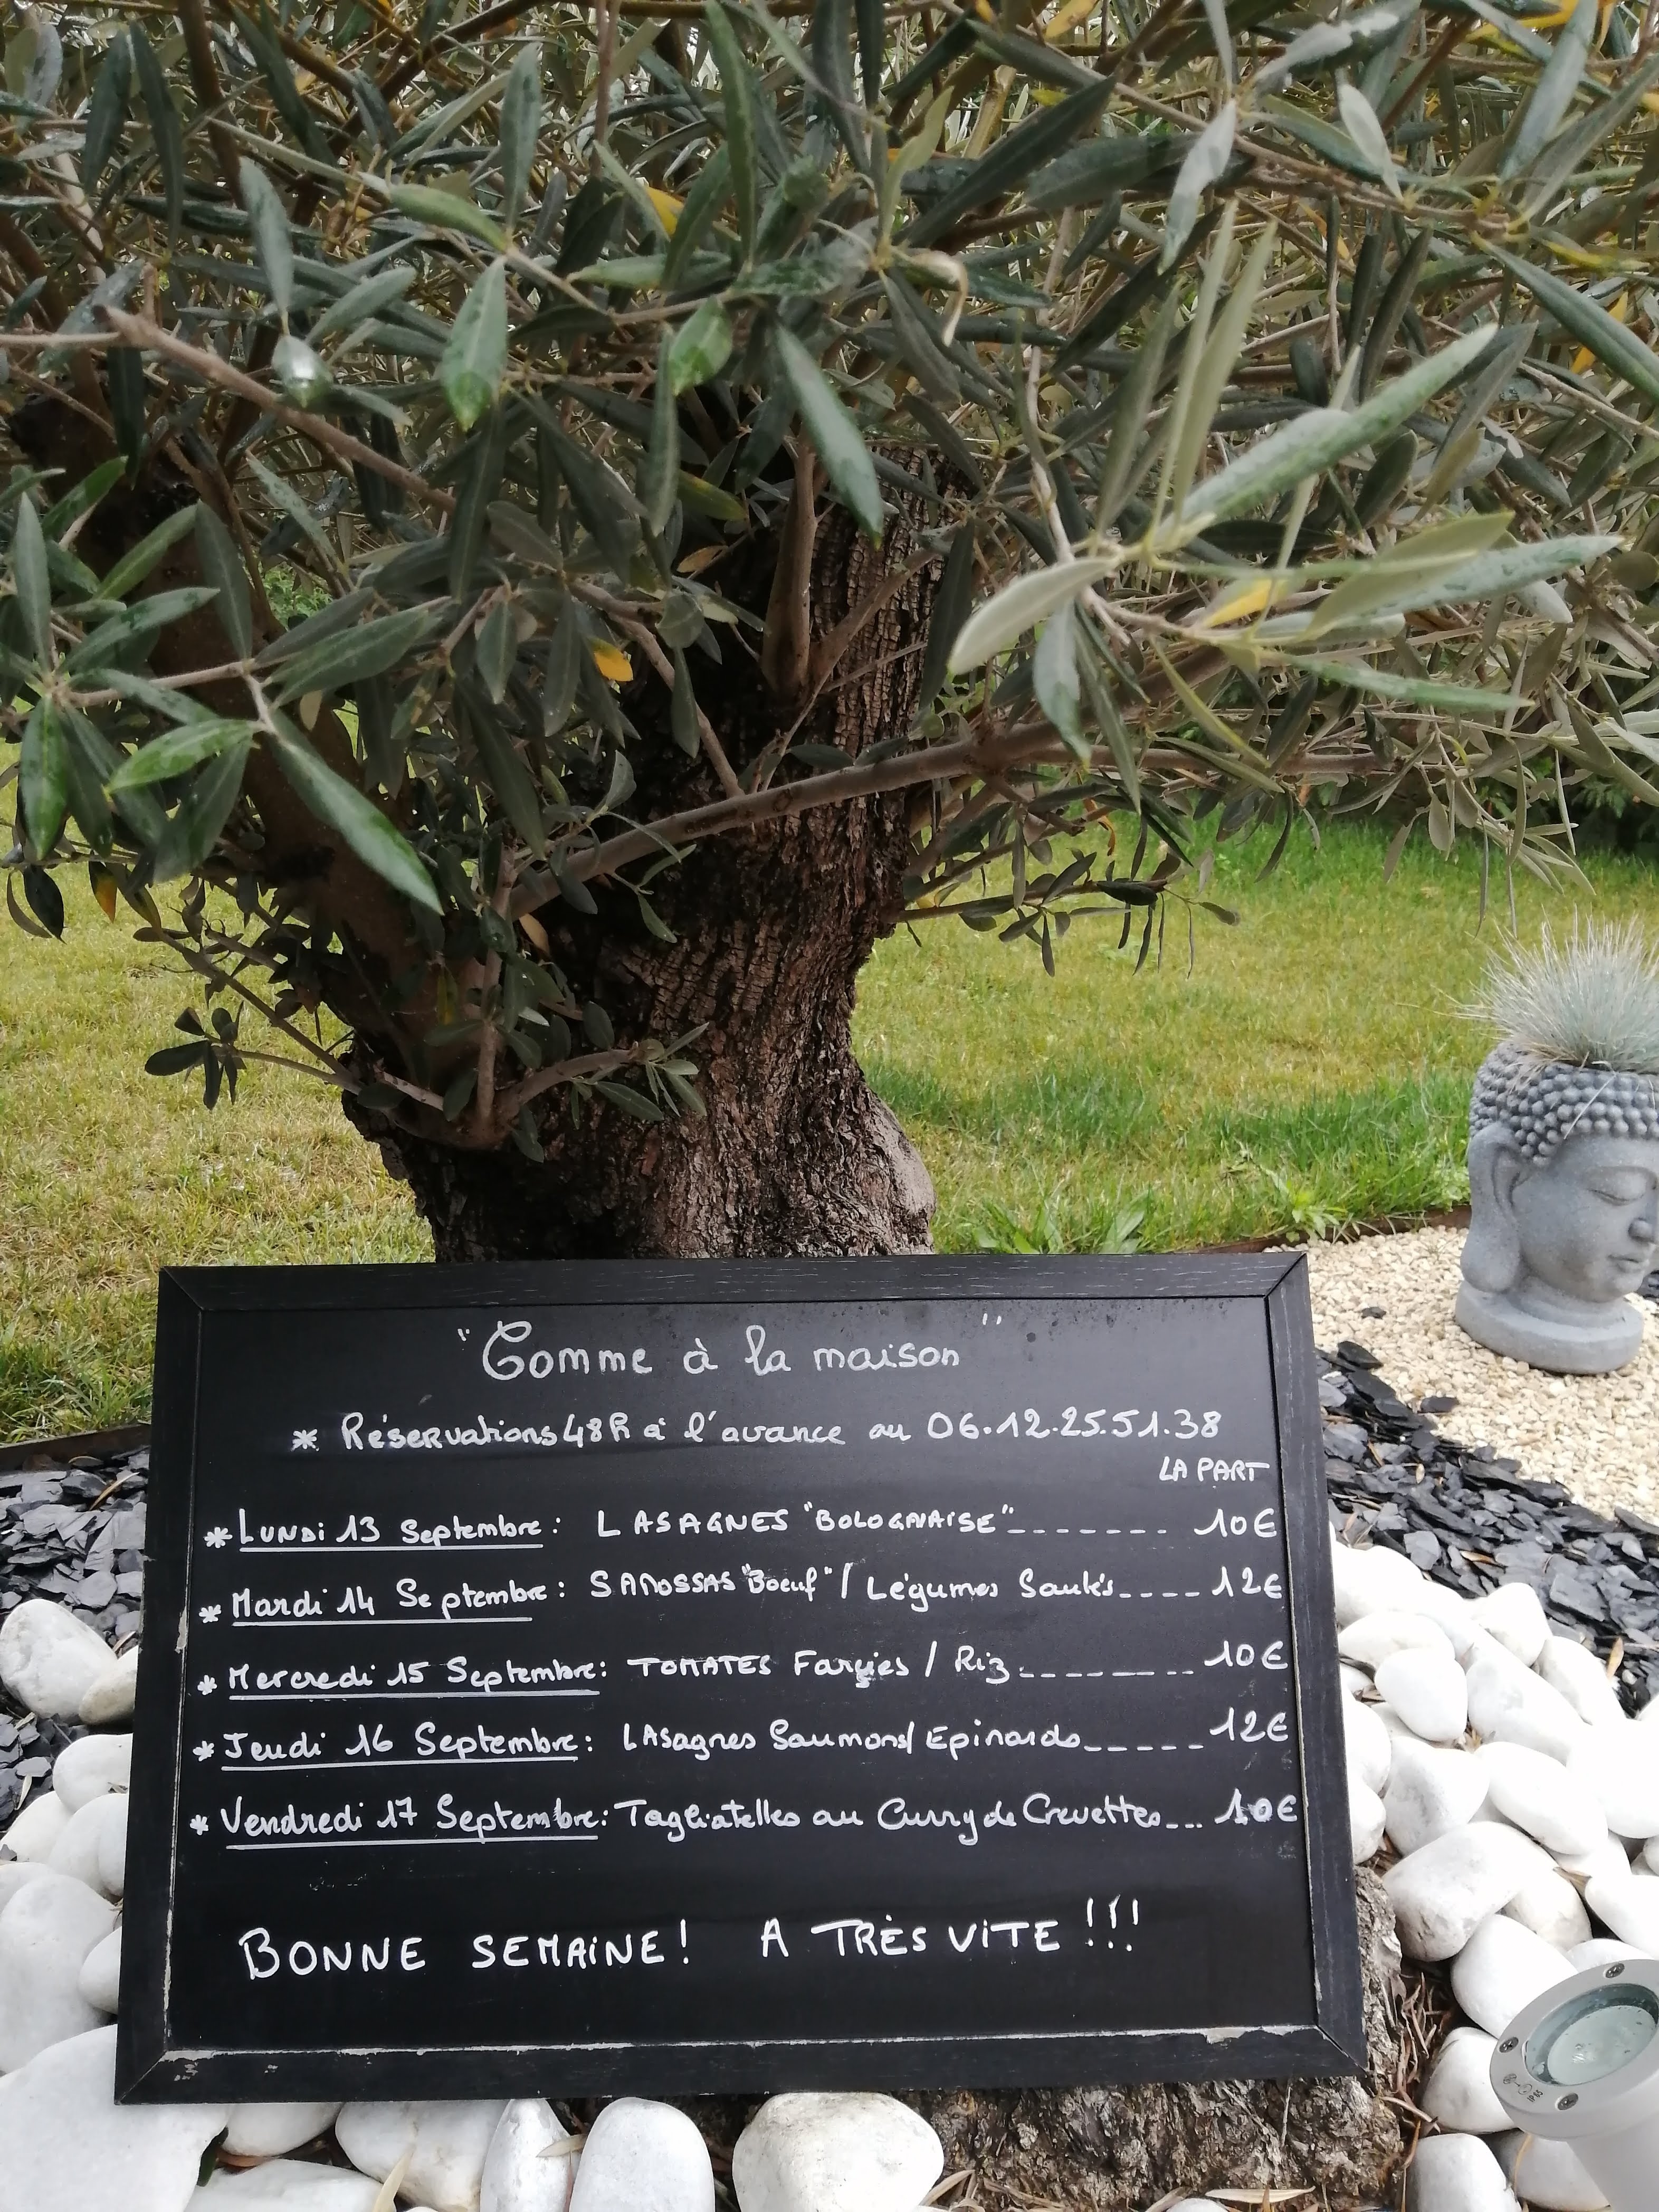 "Comme à la maison"
* Réservations 48h à l'avance au 06.12.25.51.38
LA PART
* Lundi 13 Septembre : LASAGNES "BOLOGNAISE" ------- 10€
* Mardi 14 Septembre : SAMOSSAS "Boeuf" / Légumes Sautés ---- 12€
* Mercredi 15 Septembre : TOMATES Farçies / Riz -------- 10€
* Jeudi 16 Septembre : LAsagnes Saumons/ Epinards ----- 12€
* Vendredi 17 Septembre : Tagliatelles au Curry de Crevettes --- 10€
BONNE SEMAINE ! A TRÈS VITE !!!
IP 65